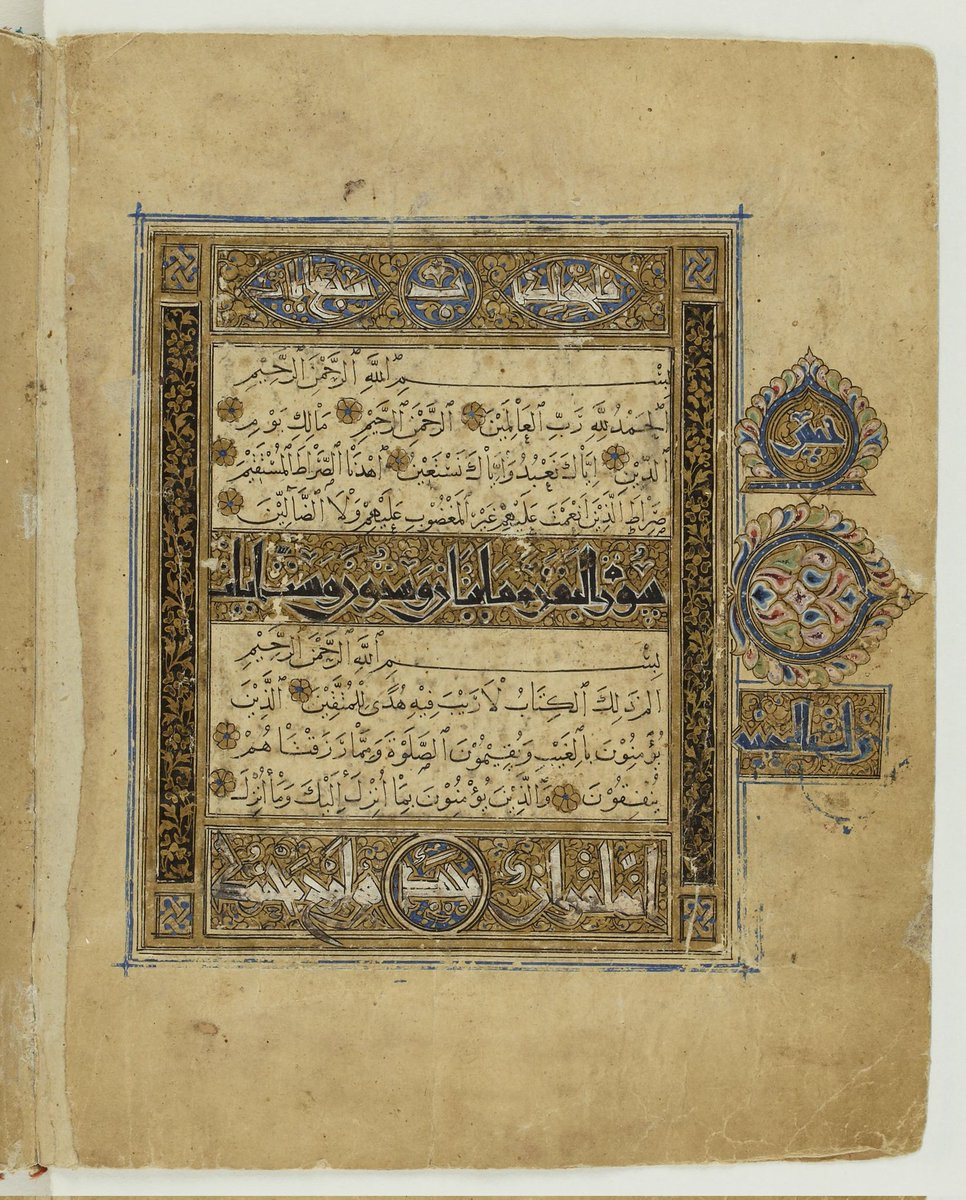 فاتحة الكتاب سبع ايات
بِسْمِ ٱللَّهِ ٱلرَّحْمٰنِ ٱلرَّحِيْمِ
اَلْحَمْدُ لِلَّهِ رَبِّ ٱلْعَالَمِيْنَ ٱلرَّحْمٰنِ ٱلرَّحِيْمِ مَالِكِ يَوْمِ
ٱلدِّيْنِ اِيَّاكَ نَعْبُدُ وَاِيَّاكَ نَسْتَعِيْنُ اِهْدِنَا ٱلصِّرَاطَ ٱلْمُسْتَقِيْمَ
صِرَاطَ ٱلَّذِيْنَ اَنْعَمْتَ عَلَيْهِمْ غَيْرِ ٱلْمَغْضُوْبِ عَلَيْهِمْ وَلَا ٱلضَّآلِّيْنَ
سورة البقرة مايتان وثمنون وست ايات
بِسْمِ ٱللَّهِ ٱلرَّحْمٰنِ ٱلرَّحِيْمِ
الم ذٰلِكَ ٱلْكِتَابُ لَا رَيْبَ فِيْهِ هُدًى لِلْمُتَّقِيْنَ ٱلَّذِيْنَ
يُؤْمِنُوْنَ بِالْغَيْبِ وَيُقِيْمُوْنَ ٱلصَّلٰوةَ وَمِمَّا رَزَقْنَاهُمْ
يُنْفِقُوْنَ وَٱلَّذِيْنَ يُؤْمِنُوْنَ بِمَا أُنْزِلَ إِلَيْكَ وَمَا أُنْزِلَ